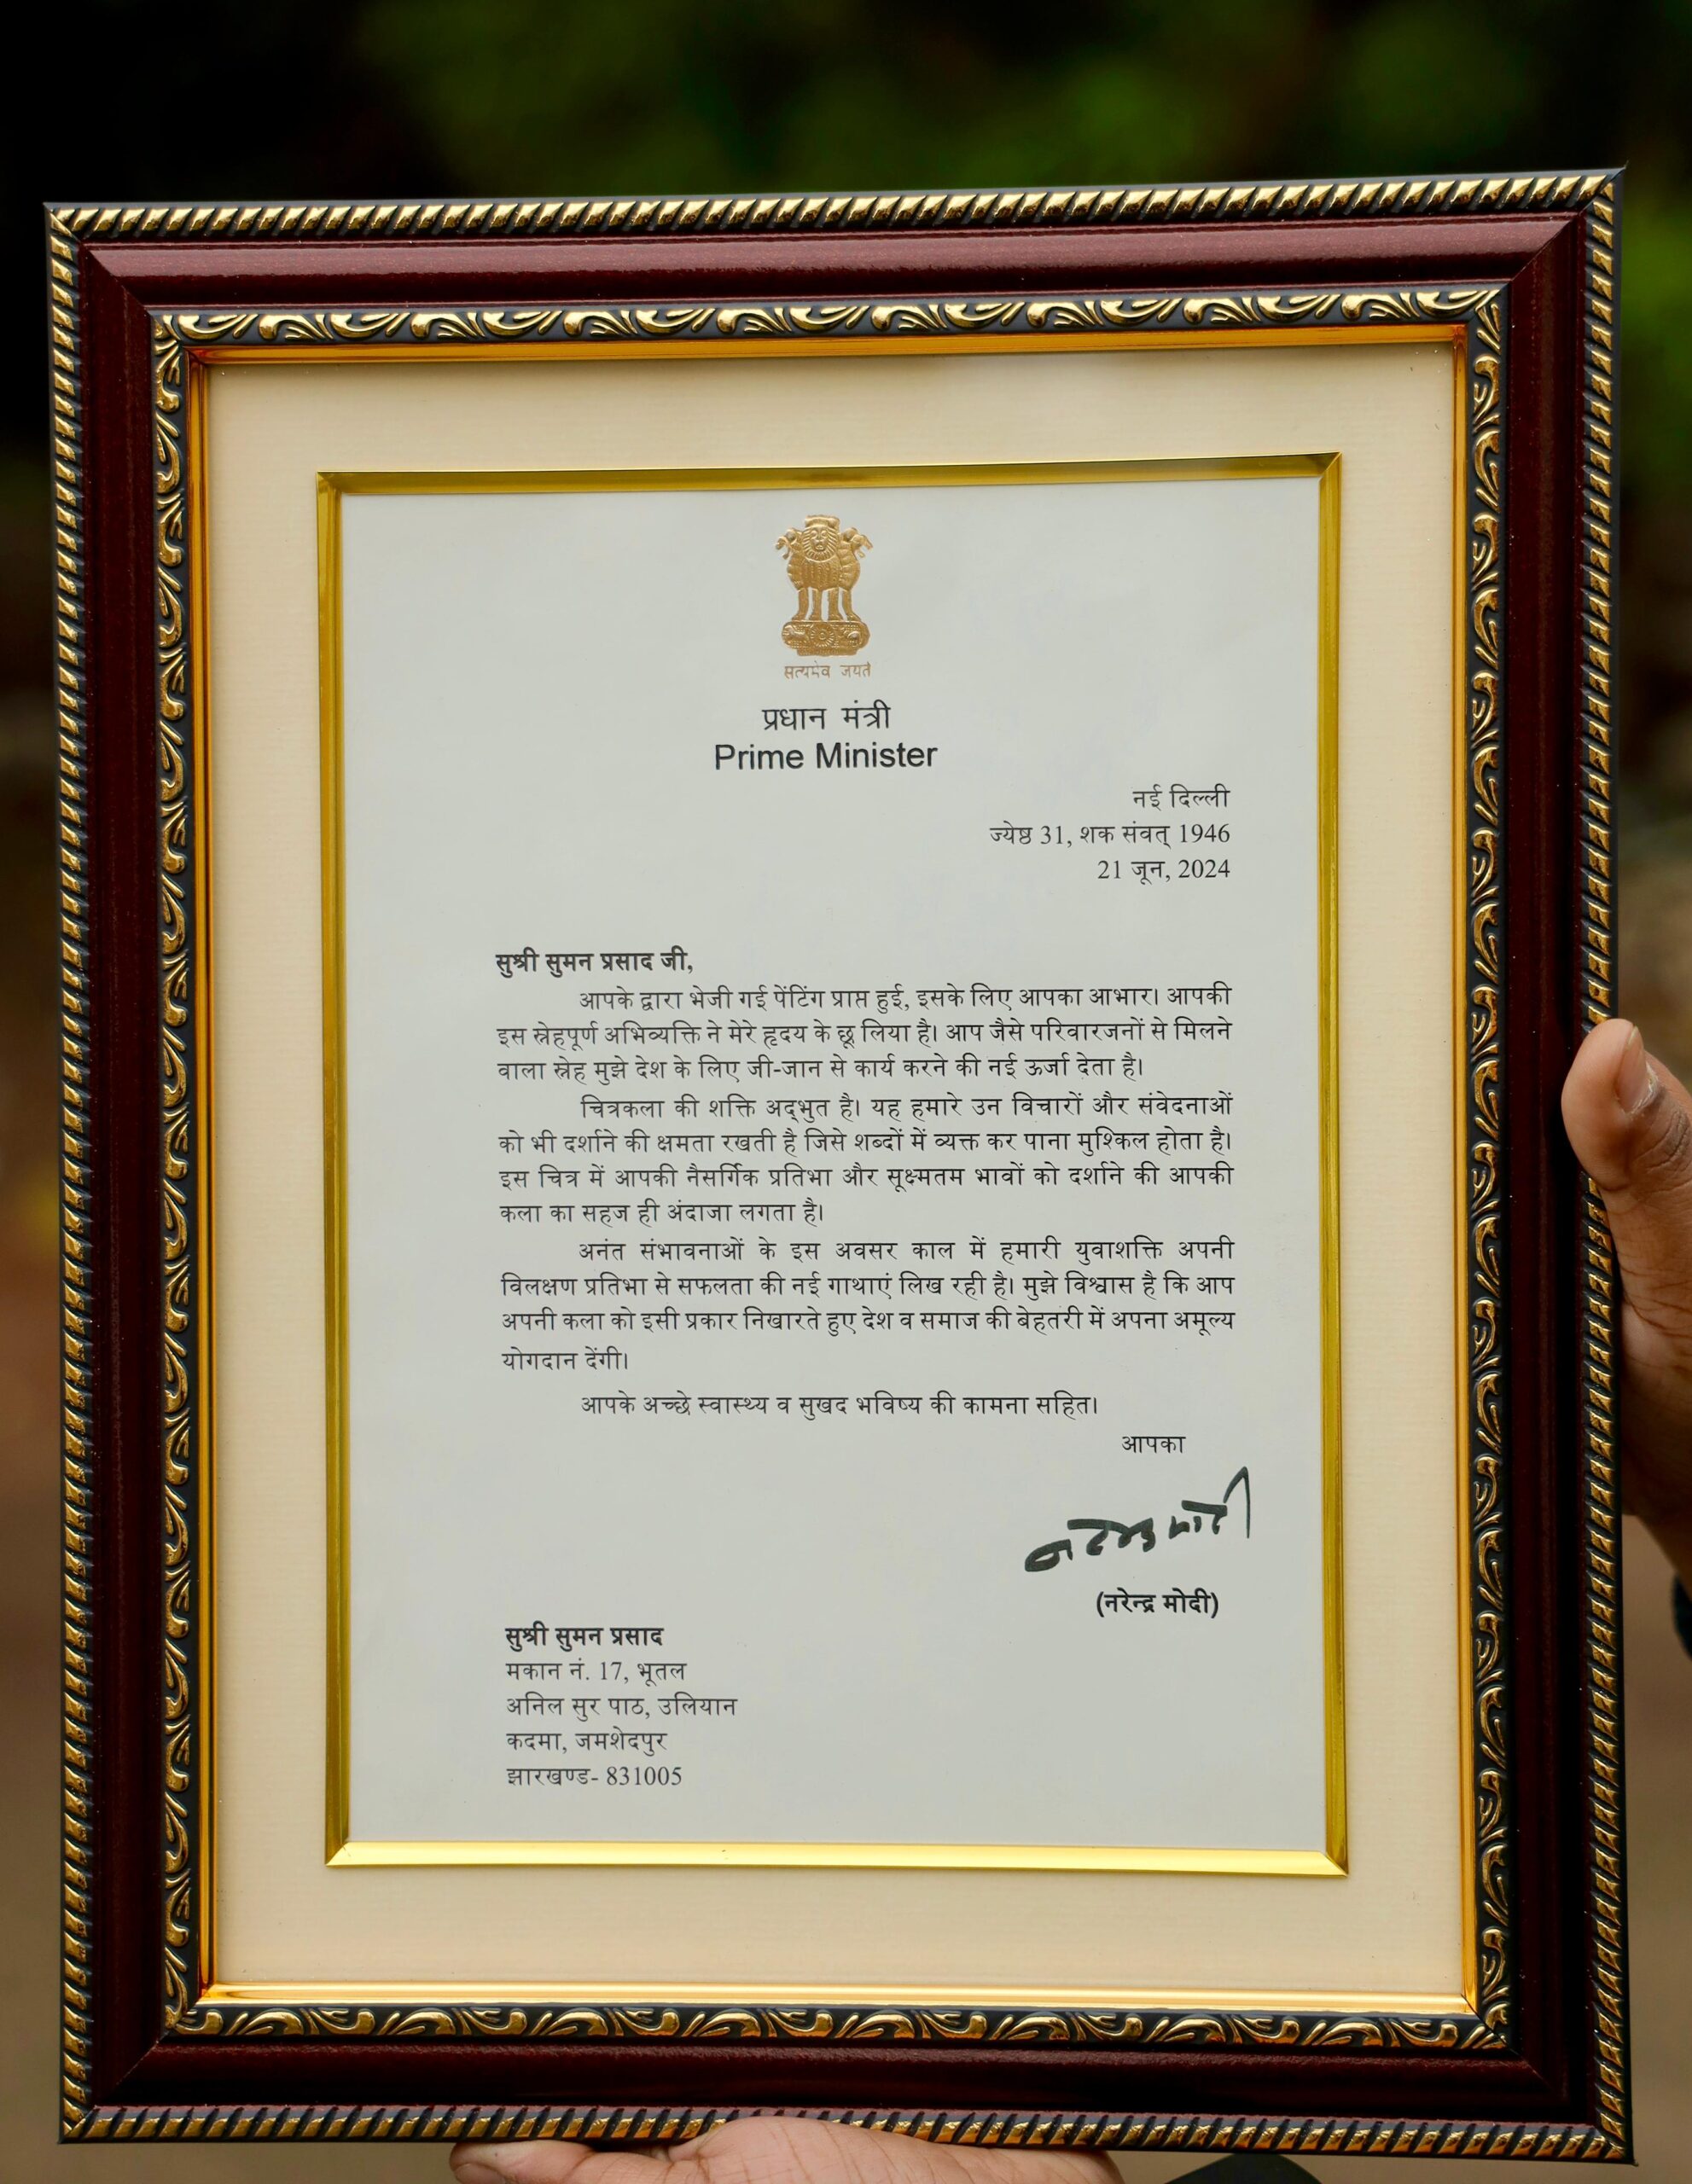 सत्यमेव जयते
प्रधान मंत्री
Prime Minister
नई दिल्ली
ज्येष्ठ 31, शक संवत् 1946
21 जून, 2024
सुश्री सुमन प्रसाद जी,
आपके द्वारा भेजी गई पेंटिंग प्राप्त हुई, इसके लिए आपका आभार। आपकी
इस स्नेहपूर्ण अभिव्यक्ति ने मेरे हृदय के छू लिया है। आप जैसे परिवारजनों से मिलने
वाला स्नेह मुझे देश के लिए जी-जान से कार्य करने की नई ऊर्जा देता है।
चित्रकला की शक्ति अद्भुत है। यह हमारे उन विचारों और संवेदनाओं
को भी दर्शाने की क्षमता रखती है जिसे शब्दों में व्यक्त कर पाना मुश्किल होता है।
इस चित्र में आपकी नैसर्गिक प्रतिभा और सूक्ष्मतम भावों को दर्शाने की आपकी
कला का सहज ही अंदाजा लगता है।
अनंत संभावनाओं के इस अवसर काल में हमारी युवाशक्ति अपनी
विलक्षण प्रतिभा से सफलता की नई गाथाएं लिख रही है। मुझे विश्वास है कि आप
अपनी कला को इसी प्रकार निखारते हुए देश व समाज की बेहतरी में अपना अमूल्य
योगदान देंगी।
आपके अच्छे स्वास्थ्य व सुखद भविष्य की कामना सहित।
आपका
नरेन्द्र मोदी
(नरेन्द्र मोदी)
सुश्री सुमन प्रसाद
मकान नं. 17, भूतल
अनिल सुर पाठ, उलियान
कदमा, जमशेदपुर
झारखण्ड- 831005